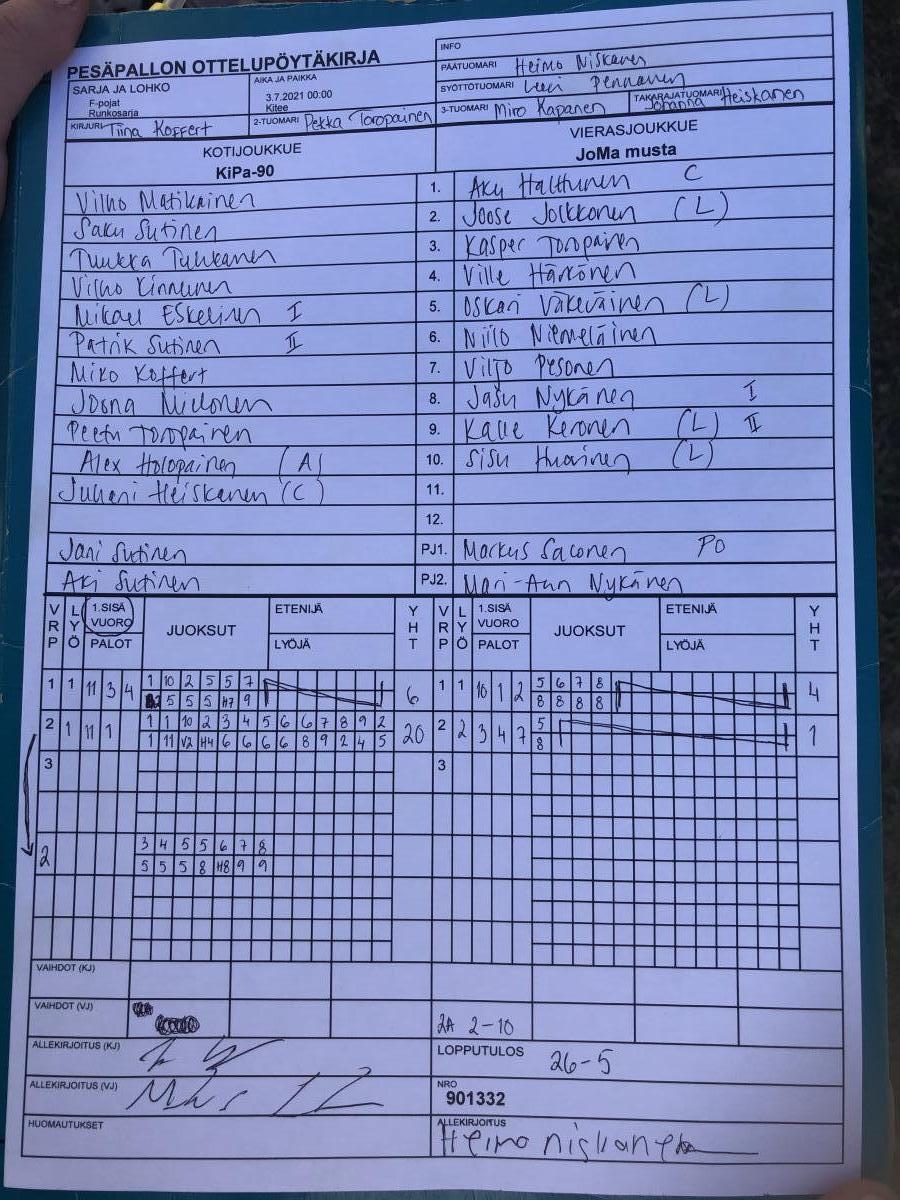 PESÄPALLON OTTELUPÖYTÄKIRJA
INFO
SARJA JA LOHKO
F-pojat
Runkosarja
AIKA JA PAIKKA
3.7.2021 00:00
Kitee
PÄÄTUOMARI Heimo Niskanen
SYÖTTÖTUOMARI Pennanen
KIRJURI Tiina Koffert
2-TUOMARI Pekka Toropainen
3-TUOMARI Miro Kapanen
TAKARAJATUOMARI Johanna Heiskanen
KOTIJOUKKUE
KiPa-90
VIERASJOUKKUE
JoMa musta
Vilho Matikainen 1. Aku Halttunen C
Saku Sutinen 2. Joose Jolkkonen (L)
Tuukka Tuhkanen 3. Kasper Toropainen
Vilho Kinnunen 4. Ville Härkönen
Mikael Eskelinen I 5. Oskari Väkeväinen (L)
Patrik Sutinen II 6. Niilo Niemeläinen
Miko Koffert 7. Viljo Pesonen
Joona Mielonen 8. Jasu Nykänen I
Peetu Toropainen 9. Kalle Keronen (L) II
Alex Holopainen (A) 10. Sisu Huovinen (L)
Juhani Heiskanen (C) 11.
12.
Jani Sutinen PJ1. Markus Saconen PO
Aki Sutinen PJ2. Mari-Ann Nykänen
VRP LYÖ 1.SISÄ VUORO PALOT JUOKSUT ETENIJÄ LYÖJÄ YHT VRP LYÖ 1.SISÄ VUORO PALOT JUOKSUT ETENIJÄ LYÖJÄ YHT
1 1 11 3 4 1 10 2 5 5 7 6 1 1 10 1 2 5 6 7 8 4
5 5 5 H7 9 8 8 8 8
2 1 11 1 1 1 10 2 3 4 5 6 6 7 8 9 2 20 2 2 3 4 7 5 1
1 11 V2 H4 6 6 6 6 8 9 2 4 5 8
3 3
2 3 4 5 5 6 7 8
5 5 5 8 H8 9 9
VAIHDOT (KJ)
VAIHDOT (VJ) 2A 2-10
ALLEKIRJOITUS (KJ)
LOPPUTULOS 26-5
ALLEKIRJOITUS (VJ)
NRO
901332
HUOMAUTUKSET
ALLEKIRJOITUS
Heimo niskanen